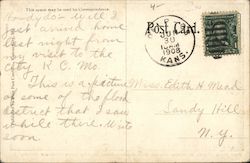 This space may be used for Correspondence.
Post Card.
Howdydo. Well I
just arrived home
last night from
my visit to the
city K.C. Mo.
This is a picture
of some of the flood
district that I saw
while there. Write
soon.
JUN
30
1908
KANS.
Miss Edith H Mead
Sandy Hill
N. Y.